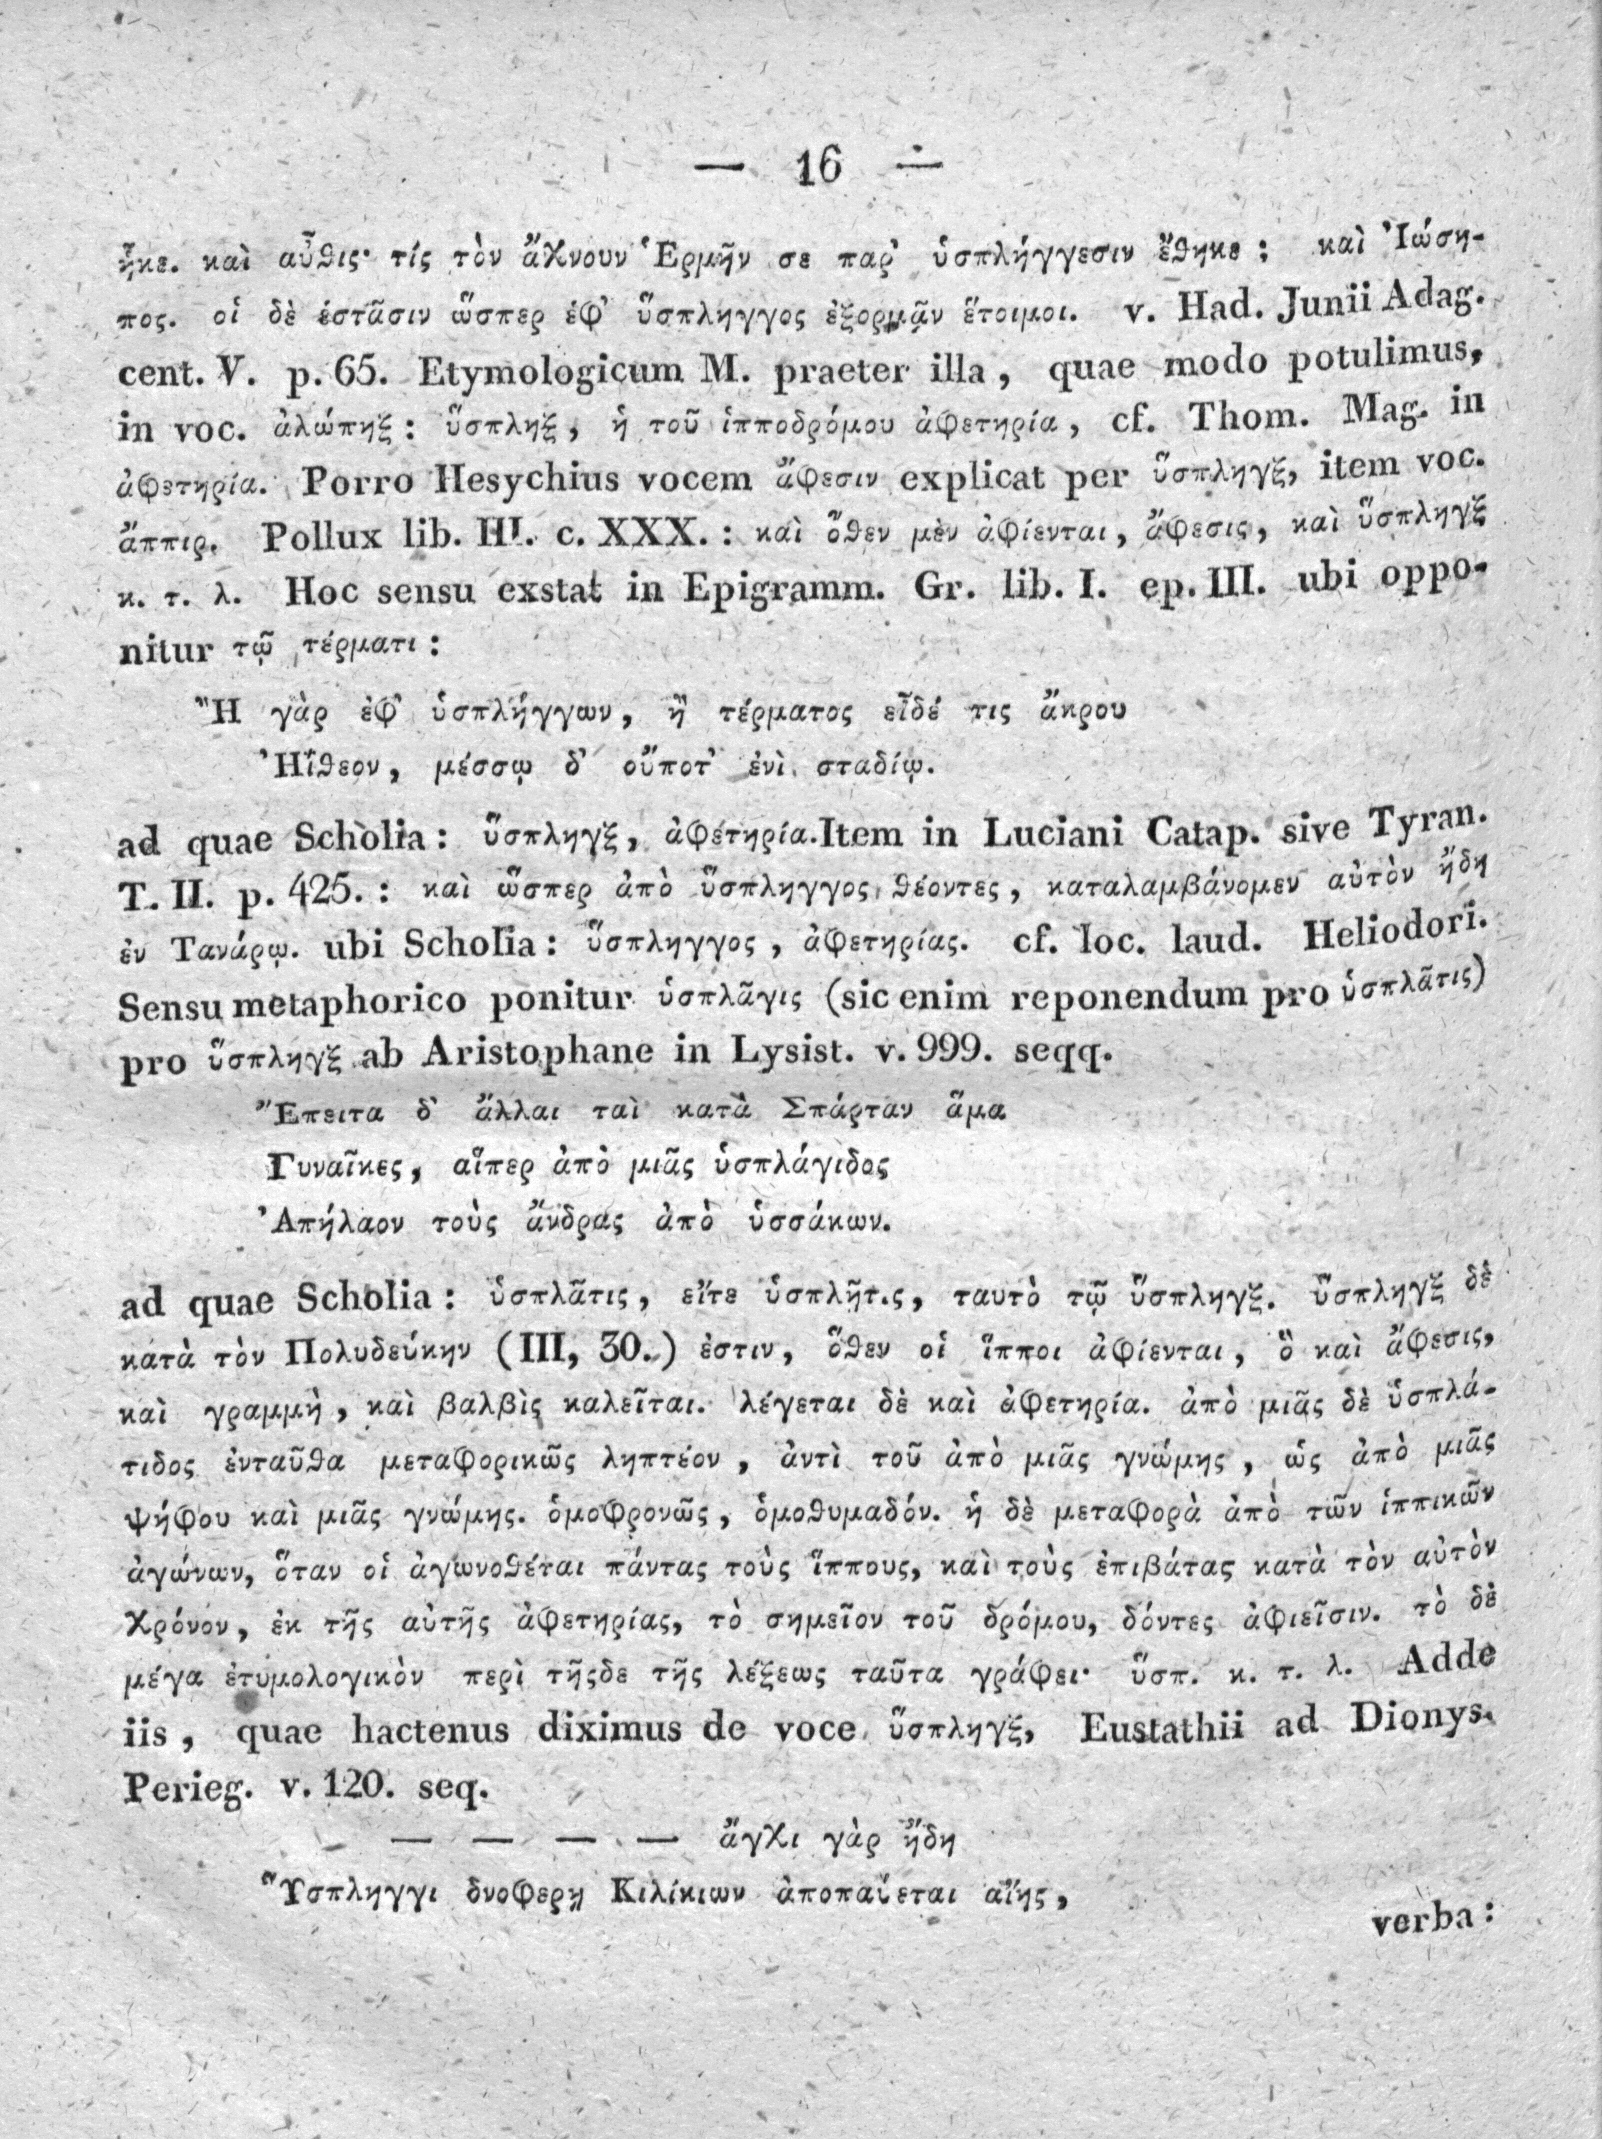 — 16 —
ἧκε. καὶ αὖθις· τίς τὸν ἄχνουν Ἑρμῆν σε παρ' ὑσπλήγγεσιν ἔθηκε; καὶ Ἰώση-
πος. οἱ δὲ ἑστᾶσιν ὥσπερ ἐφ' ὕσπληγγος ἐξορμᾷν ἕτοιμοι. v. Had. Junii Adag.
cent. V. p. 65. Etymologicum M. praeter illa, quae modo potulimus,
in voc. ἀλώπηξ: ὕσπληξ, ἡ τοῦ ἱπποδρόμου ἀφετηρία, cf. Thom. Mag. in
ἀφετηρία. Porro Hesychius vocem ἄφεσιν explicat per ὕσπληγξ, item voc.
ἄππιρ. Pollux lib. III. c. XXX.: καὶ ὅθεν μὲν ἀφίενται, ἄφεσις, καὶ ὕσπληγξ
κ. τ. λ. Hoc sensu exstat in Epigramm. Gr. lib. I. ep. III. ubi oppo-
nitur τῷ τέρματι:
Ἢ γὰρ ἐφ' ὑσπλήγγων, ἢ τέρματος εἶδέ τις ἄκρου
Ἠΐθεον, μέσσῳ δ' οὔποτ' ἐνὶ σταδίῳ.
ad quae Scholia: ὕσπληγξ, ἀφέτηρία. Item in Luciani Catap. sive Tyran.
T. II. p. 425.: καὶ ὥσπερ ἀπὸ ὕσπληγγος θέοντες, καταλαμβάνομεν αὐτὸν ἤδη
ἐν Τανάρῳ. ubi Scholia: ὕσπληγγος, ἀφετηρίας. cf. loc. laud. Heliodori.
Sensu metaphorico ponitur ὑσπλᾶγις (sic enim reponendum pro ὑσπλᾶτις)
pro ὕσπληγξ ab Aristophane in Lysist. v. 999. seqq.
Ἔπειτα δ' ἄλλαι ταὶ κατὰ Σπάρταν ἅμα
Γυναῖκες, αἵπερ ἀπὸ μιᾶς ὑσπλάγιδος
Ἀπήλαον τοὺς ἄνδρας ἀπὸ ὑσσάκων.
ad quae Scholia: ὑσπλᾶτις, εἴτε ὑσπλῆτις, ταυτὸ τῷ ὕσπληγξ. ὕσπληγξ δὲ
κατὰ τὸν Πολυδεύκην (III, 30.) ἐστιν, ὅθεν οἱ ἵπποι ἀφίενται, ὃ καὶ ἄφεσις,
καὶ γραμμὴ, καὶ βαλβὶς καλεῖται. λέγεται δὲ καὶ ἀφετηρία. ἀπὸ μιᾶς δὲ ὑσπλά-
τιδος ἐνταῦθα μεταφορικῶς ληπτέον, ἀντὶ τοῦ ἀπὸ μιᾶς γνώμης, ὡς ἀπὸ μιᾶς
ψήφου καὶ μιᾶς γνώμης. ὁμοφρονῶς, ὁμοθυμαδόν. ἡ δὲ μεταφορὰ ἀπὸ τῶν ἱππικῶν
ἀγώνων, ὅταν οἱ ἀγωνοθέται πάντας τοὺς ἵππους, καὶ τοὺς ἐπιβάτας κατὰ τὸν αὐτὸν
χρόνον, ἐκ τῆς αὐτῆς ἀφετηρίας, τὸ σημεῖον τοῦ δρόμου, δόντες ἀφιεῖσιν. τὸ δὲ
μέγα ἐτυμολογικὸν περὶ τῆςδε τῆς λέξεως ταῦτα γράφει· ὕσπ. κ. τ. λ. Adde
iis, quae hactenus diximus de voce ὕσπληγξ, Eustathii ad Dionys.
Perieg. v. 120. seq.
— — — — ἄγχι γὰρ ἤδη
Ὕσπληγγι δνοφερῃ Κιλίκιων ἀποπαύεται αἴης,
verba: